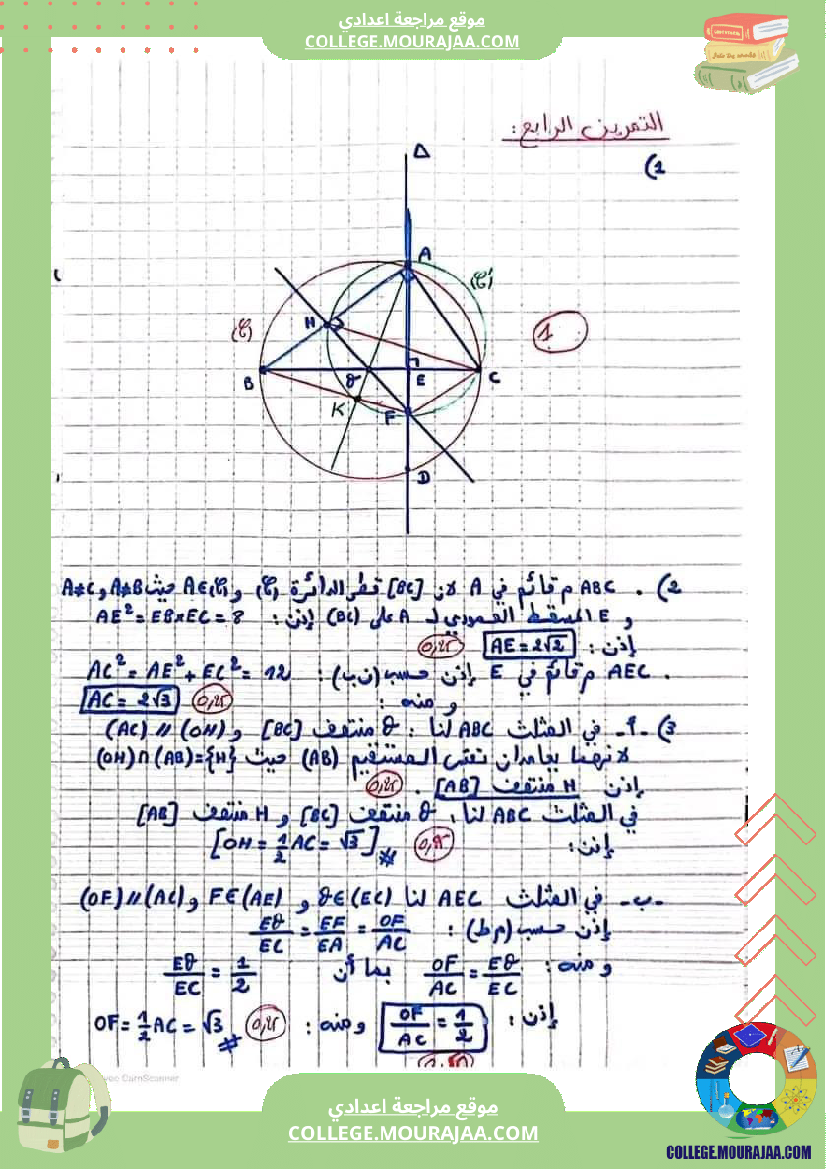 موقع مراجعة اعدادي
COLLEGE.MOURAJAA.COM
التمرين الرابع:
1)
Δ
A
(ℰ')
H
(ℰ)
1
B
O
E
C
K
F
D
2) . ABC م قائم في A لان [BC] قطر الدائرة (ℰ) و A∈(ℰ) حيث A≠B و A≠C
و E المسقط العمودي لـ A على (BC) إذن: AE² = EB×EC = 8
إذن: AE = 2√2 0,25
. AEC م قائم في E إذن حسب (ن ب): AC² = AE² + EC² = 12
و منه: AC = 2√3 0,25
3) - أ - في المثلث ABC لنا: O منتصف [BC] و (OH) // (AC)
لانهما يعامدان نفس المستقيم (AB) حيث (OH)∩(AB)={H}
إذن H منتصف [AB] . 0,25
في المثلث ABC لنا: O منتصف [BC] و H منتصف [AB]
إذن: [OH = 1/2 AC = √3] 0,25
- ب - في المثلث AEC لنا O∈(EC) و F∈(AE) و (OF) // (AC)
إذن حسب (م ط): EO/EC = EF/EA = OF/AC
و منه: OF/AC = EO/EC بما أن EO/EC = 1/2
إذن: OF/AC = 1/2 و منه: 0,25 OF = 1/2 AC = √3
avec CamScanner
موقع مراجعة اعدادي
COLLEGE.MOURAJAA.COM
COLLEGE.MOURAJAA.COM